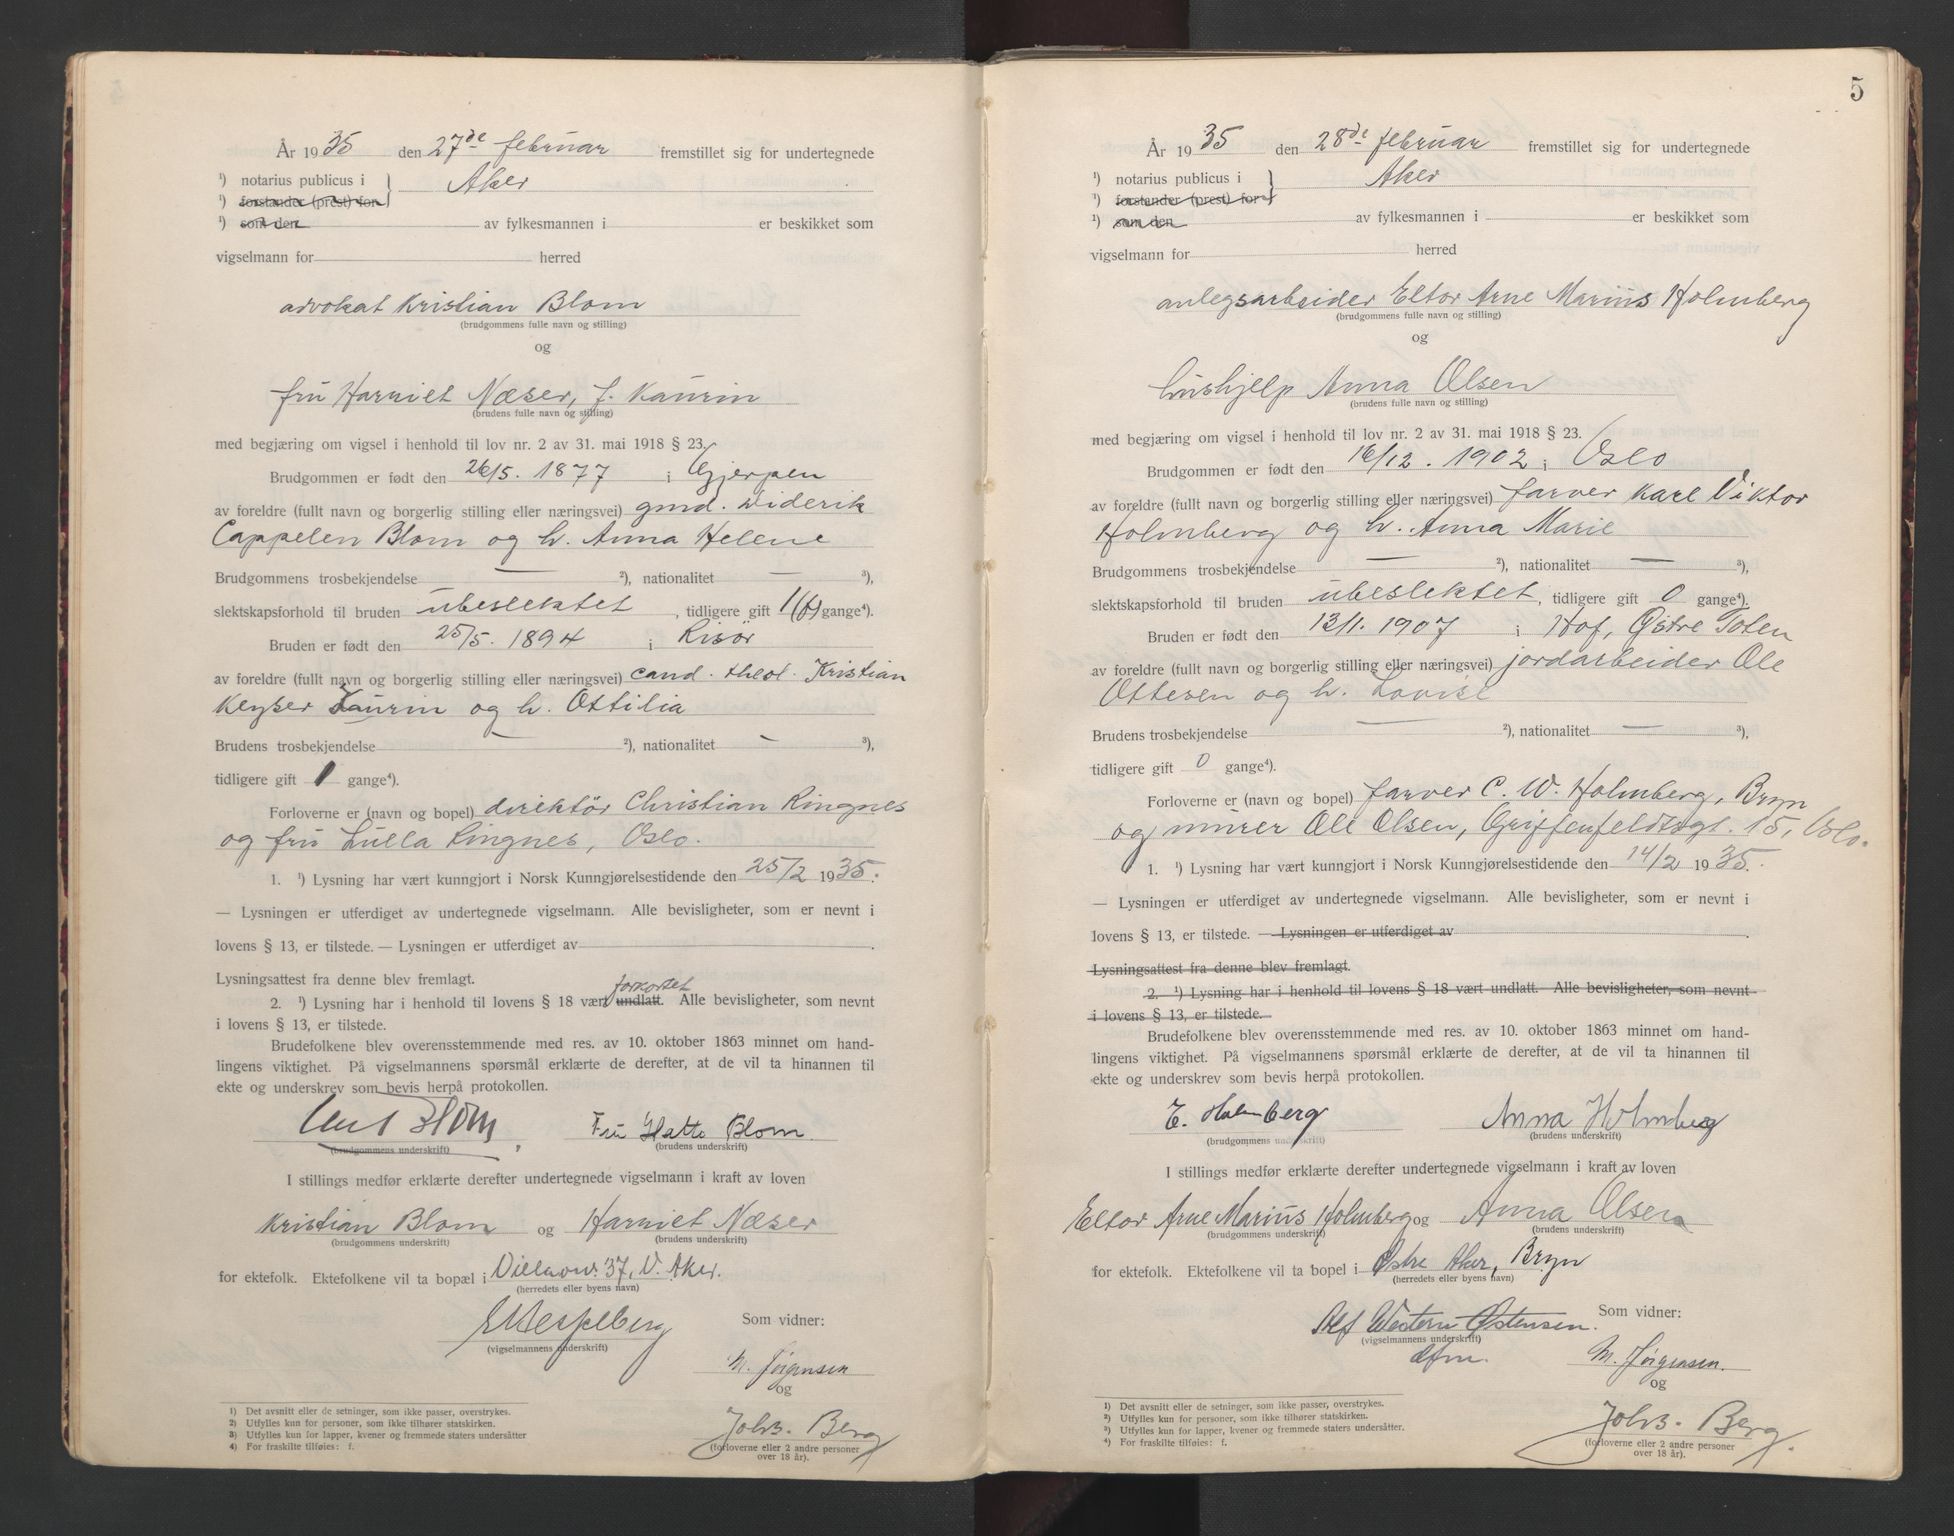 År 1935 den 27de februar fremstillet sig for undertegnede
¹) notarius publicus i } Aker
¹) forstander (prest) for
¹) som den av fylkesmannen i er beskikket som
vigselmann for herred
advokat Kristian Blom
(brudgommens fulle navn og stilling)
og
fru Harriet Næser, f. Kaurin
(brudens fulle navn og stilling)
med begjæring om vigsel i henhold til lov nr. 2 av 31. mai 1918 § 23.
Brudgommen er født den 26/5. 1877 i Gjerpen
av foreldre (fullt navn og borgerlig stilling eller næringsvei) gmd. Diderik
Cappelen Blom og h. Anna Helene
Brudgommens trosbekjendelse — ²), nationalitet — ³),
slektskapsforhold til bruden ubeslektet, tidligere gift 1(f) gange⁴).
Bruden er født den 25/5. 1894 i Risör
av foreldre (fullt navn og borgerlig stilling eller næringsvei) cand. theol. Kristian
Keyser Kaurin og h. Ottilia
Brudens trosbekjendelse ²), nationalitet - ³),
tidligere gift 1 gange⁴).
Forloverne er (navn og bopel) direktör Christian Ringnes
og fru Lulla Ringnes, Oslo.
1. ¹) Lysning har vært kunngjort i Norsk Kunngjørelsestidende den 25/2 1935.
— Lysningen er utferdiget av undertegnede vigselmann. Alle bevisligheter, som er nevnt i
lovens § 13, er tilstede. — Lysningen er utferdiget av .
Lysningsattest fra denne blev fremlagt.
forkortet
2. ¹) Lysning har i henhold til lovens § 18 vært undlatt. Alle bevisligheter, som nevnt
i lovens § 13, er tilstede.
Brudefolkene blev overensstemmende med res. av 10. oktober 1863 minnet om hand-
lingens viktighet. På vigselmannens spørsmål erklærte de derefter, at de vil ta hinannen til
ekte og underskrev som bevis herpå protokollen.
Blom Fru Blom.
(brudgommens underskrift) (brudens underskrift)
I stillings medfør erklærte derefter undertegnede vigselmann i kraft av loven
Kristian Blom og Harriet Næser
(brudgommens underskrift) (brudens underskrift)
for ektefolk. Ektefolkene vil ta bopæl i 37, V. Aker.
(herredets eller byens navn)
Som vidner:
(vigselmannens underskrift)
M. Jörgensen
og
Johs. Berg
(forloverne eller 2 andre personer
over 18 år).
1) Det avsnitt eller de setninger, som ikke passer, overstrykes.
2) Utfylles kun for personer, som ikke tilhører statskirken.
3) Utfylles kun for lapper, kvener og fremmede staters undersåtter
4) For fraskilte tilføies: f.
5
År 1935 den 28de februar fremstillet sig for undertegnede
¹) notarius publicus i } Aker
¹) forstander (prest) for
¹) som den av fylkesmannen i er beskikket som
vigselmann for herred
anlegsarbeider Eltor Arne Marius Holmberg
(brudgommens fulle navn og stilling)
og
hushjelp Anna Olsen
(brudens fulle navn og stilling)
med begjæring om vigsel i henhold til lov nr. 2 av 31. mai 1918 § 23.
Brudgommen er født den 16/12. 1902 i Oslo
av foreldre (fullt navn og borgerlig stilling eller næringsvei) farver Karl Viktor
Holmberg og h. Anna Marie
Brudgommens trosbekjendelse — ²), nationalitet — ³),
slektskapsforhold til bruden ubeslektet, tidligere gift 0 gange⁴).
Bruden er født den 13/1. 1907 i Hof, Østre Toten
av foreldre (fullt navn og borgerlig stilling eller næringsvei) jordarbeider Ole
Ottesen og h. Lovise
Brudens trosbekjendelse — ²), nationalitet — ³),
tidligere gift 0 gange⁴).
Forloverne er (navn og bopel) farver C. W. Holmberg, Bryn
og murer Ole Olsen, Griffenfeldtsgt. 15, Oslo.
1. ¹) Lysning har vært kunngjort i Norsk Kunngjørelsestidende den 14/2 1935.
— Lysningen er utferdiget av undertegnede vigselmann. Alle bevisligheter, som er nevnt i
lovens § 13, er tilstede. — Lysningen er utferdiget av .
Lysningsattest fra denne blev fremlagt.
2. ¹) Lysning har i henhold til lovens § 18 vært undlatt. Alle bevisligheter, som nevnt
i lovens § 13, er tilstede.
Brudefolkene blev overensstemmende med res. av 10. oktober 1863 minnet om hand-
lingens viktighet. På vigselmannens spørsmål erklærte de derefter, at de vil ta hinannen til
ekte og underskrev som bevis herpå protokollen.
E. Holmberg Anna Holmberg
(brudgommens underskrift) (brudens underskrift)
I stillings medfør erklærte derefter undertegnede vigselmann i kraft av loven
Eltor Arne Marius Holmberg og Anna Olsen
(brudgommens underskrift) (brudens underskrift)
for ektefolk. Ektefolkene vil ta bopel i Østre Aker, Bryn
(herredets eller byens navn)
Alf Western Østensen. Som vidner:
(vigselmannens underskrift)
dfm. M. Jörgensen.
og
Johs. Berg.
(forloverne eller 2 andre personer
over 18 år).
1) Det avsnitt eller de setninger, som ikke passer, overstrykes.
2) Utfylles kun for personer, som ikke tilhører statskirken.
3) Utfylles kun for lapper, kvener og fremmede staters undersåtter.
4) For fraskilte tilføies: f.